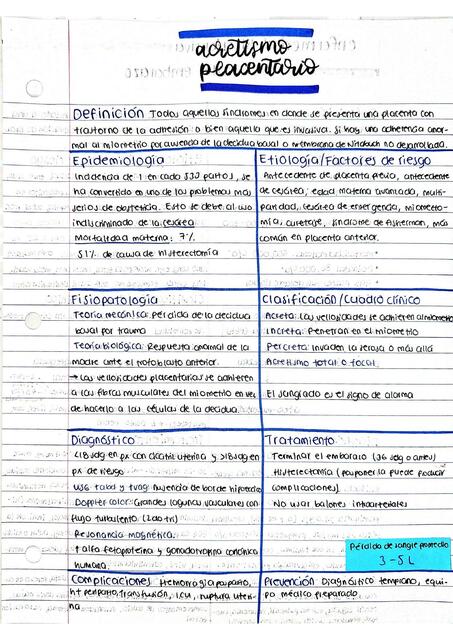 acretismo
placentario
Definición Todos aquellos síndromes en donde se presenta una placenta con
trastorno de la adhesión o bien aquella que es invasiva. Si hay una adherencia anor-
mal al miometrio por ausencia de la decidua basal o membrana de Nitabuch no desarrollada.
Epidemiología
Incidencia de 1 en cada 533 partos, se
ha convertido en uno de los problemas más
serios de obstetricia. Esto se debe al uso
indiscriminado de la cesárea
Mortalidad materna: 7%
51% de causa de histerectomía
Etiología/Factores de riesgo
Antecedente de placenta previa, antecedente
de cesárea, edad materna avanzada, multi-
paridad, cesárea de emergencia, miomecto-
mía, curetaje, síndrome de Asherman, más
común en placenta anterior.
Fisiopatología
Teoría mecánica: pérdida de la decidua
basal por trauma
Teoría biológica: Respuesta anormal de la
madre ante el trofoblasto anterior.
→ Las vellosidades placentarias se adhieren
a las fibras musculares del miometrio en vez
de hacerlo a las células de la decidua.
Clasificación/Cuadro clínico
Acreta: Las vellosidades se adhieren al miometrio
Increta: Penetran en el miometrio
Percreta: Invaden la serosa o más allá
Acretismo total o focal
El sangrado es el signo de alarma
Diagnóstico
en px con cicatriz uterina y en
px de riesgo
USG tabd y tvag: Ausencia de borde hipoecoico
Doppler color: Grandes lagunas vasculares con
flujo turbulento (2do tri)
Resonancia magnética.
↑ alfa fetoproteína y gonadotropina coriónica
humana.
Tratamiento
Terminar el embarazo (36 sdg o antes)
Histerectomía (posponerla puede producir
complicaciones)
No usar balones intraarteriales
Pérdida de sangre promedio
3-5 L
Complicaciones Hemorragia posparto,
ht periparto, transfusión, ICU, ruptura uteri-
na
Prevención Diagnóstico temprano, equi-
po médico preparado.